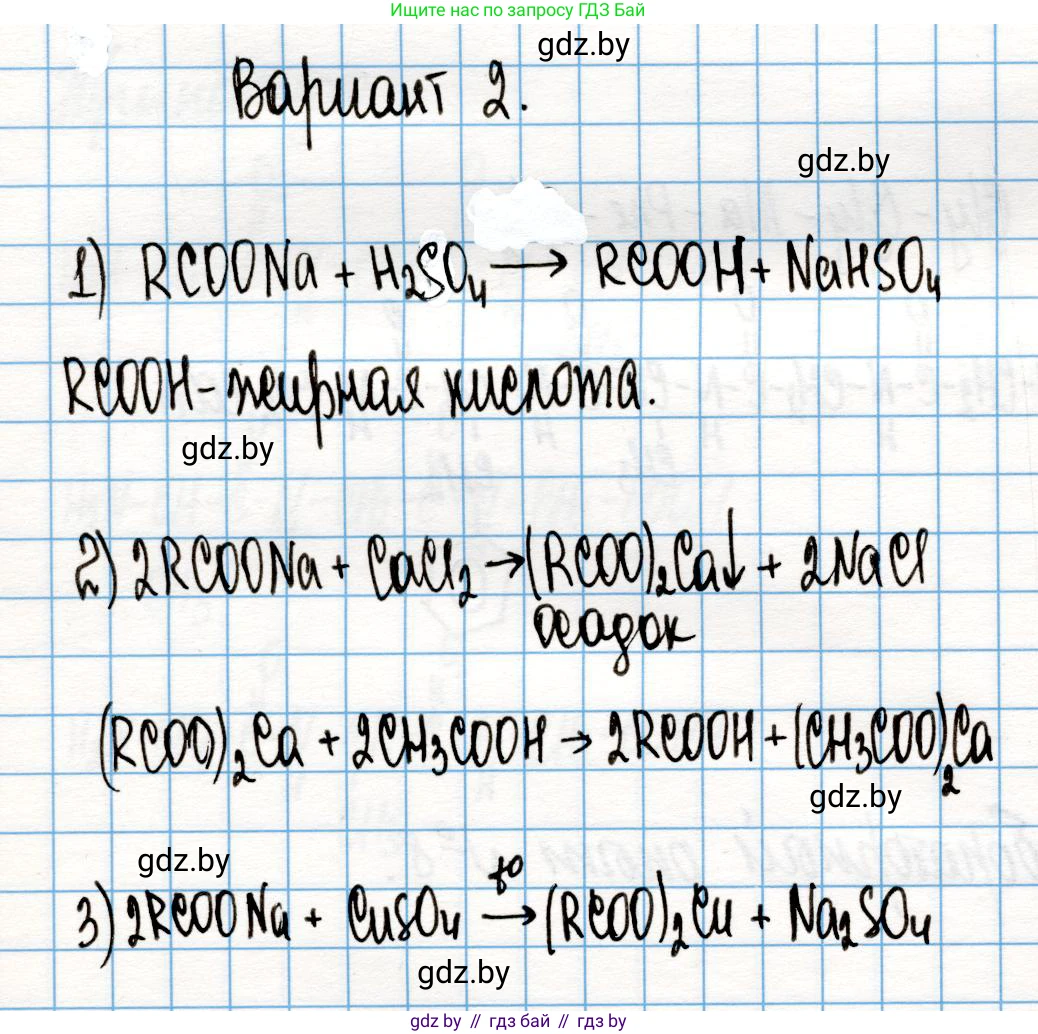 Ищите нас по запросу ГДЗ Бай
gdz.by
Вариант 2.
gdz.by
1) RCOONa + H₂SO₄ → RCOOH + NaHSO₄
RCOOH - жирная кислота.
gdz.by
2) 2RCOONa + CaCl₂ → (RCOO)₂Ca↓ + 2NaCl
осадок
(RCOO)₂Ca + 2CH₃COOH → 2RCOOH + (CH₃COO)₂Ca
gdz.by
gdz.by
t°
3) 2RCOONa + CuSO₄ → (RCOO)₂Cu + Na₂SO₄
gdz.by
gdz.by // гдз бай // гдз by